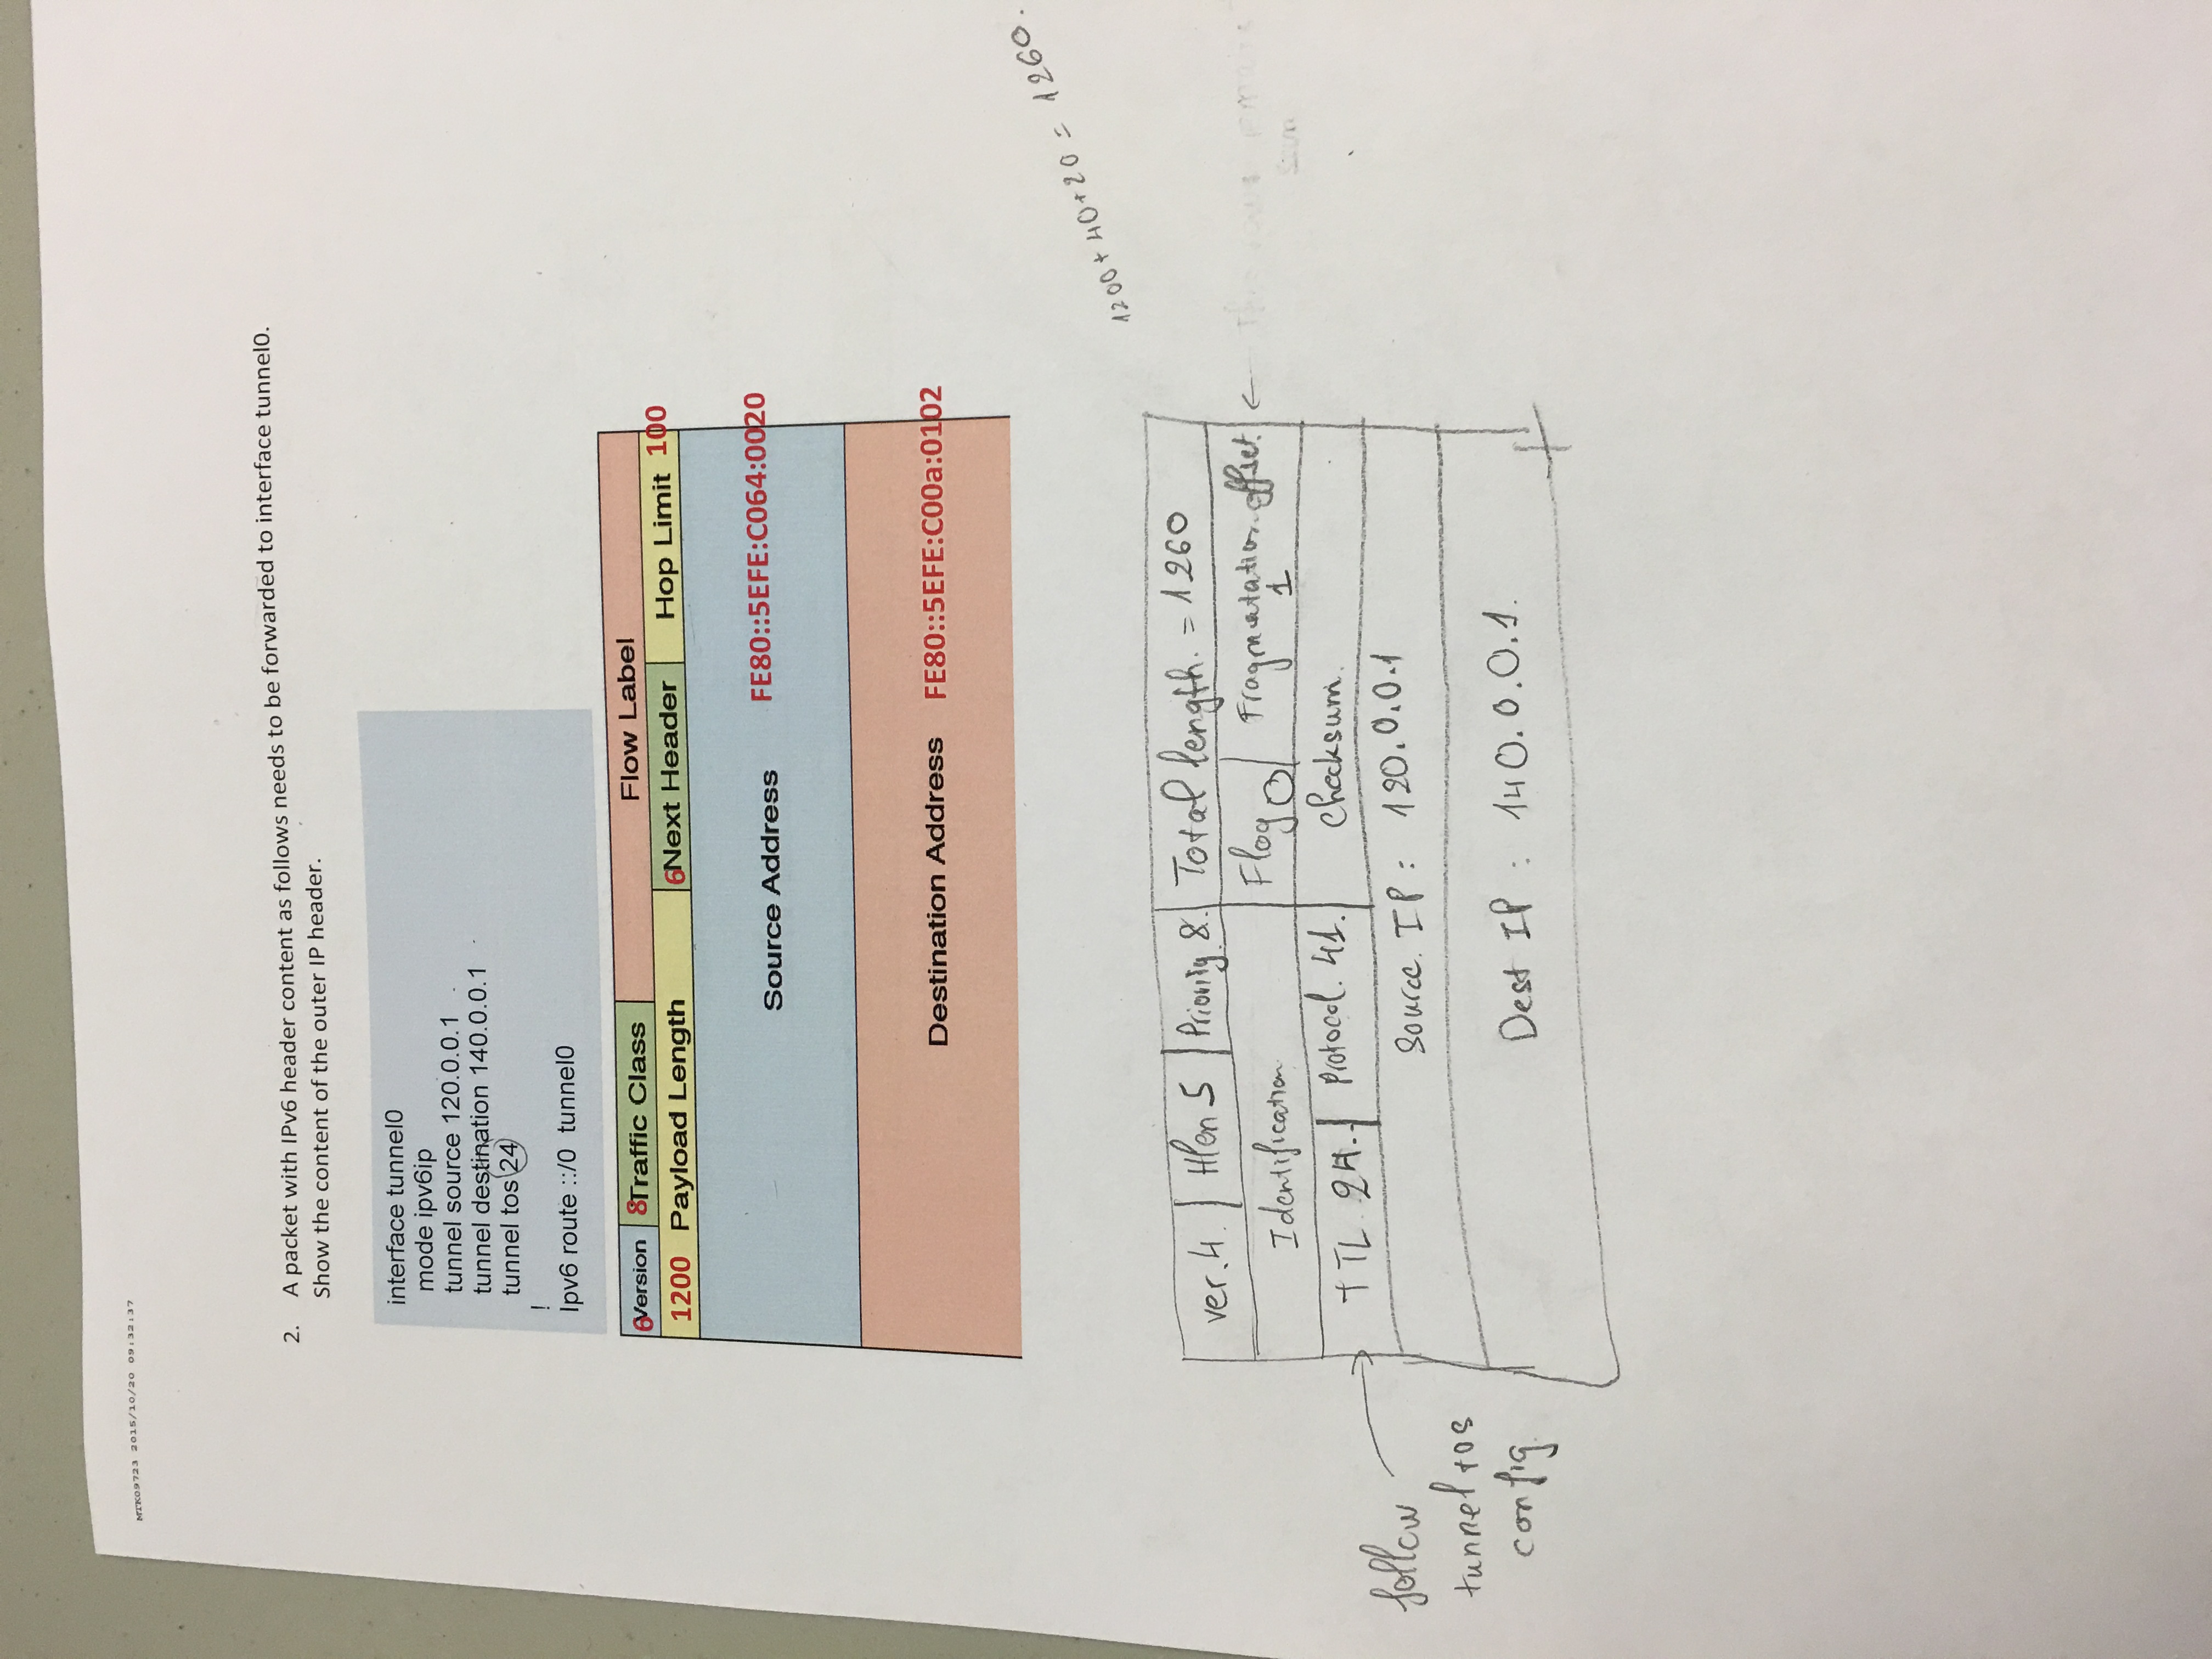 MTK09723 2015/10/20 09:32:37
2. A packet with IPv6 header content as follows needs to be forwarded to interface tunnel0.
Show the content of the outer IP header.
interface tunnel0
mode ipv6ip
tunnel source 120.0.0.1
tunnel destination 140.0.0.1
tunnel tos 24
!
Ipv6 route ::/0 tunnel0
6 Version 8 Traffic Class Flow Label
1200 Payload Length 6 Next Header Hop Limit 100
Source Address FE80::5EFE:C064:0020
Destination Address FE80::5EFE:C00a:0102
1200+40+20 = 1260.
ver.4. Hlen 5 Priority 8. Total length. = 1260
Identification Flag 0 Fragmutation offset. ←
1
TTL 24. Protocol. 41. Checksum.
follow
tunnel tos
config.
Source. IP : 120.0.0.1
Dest IP : 140.0.0.1.